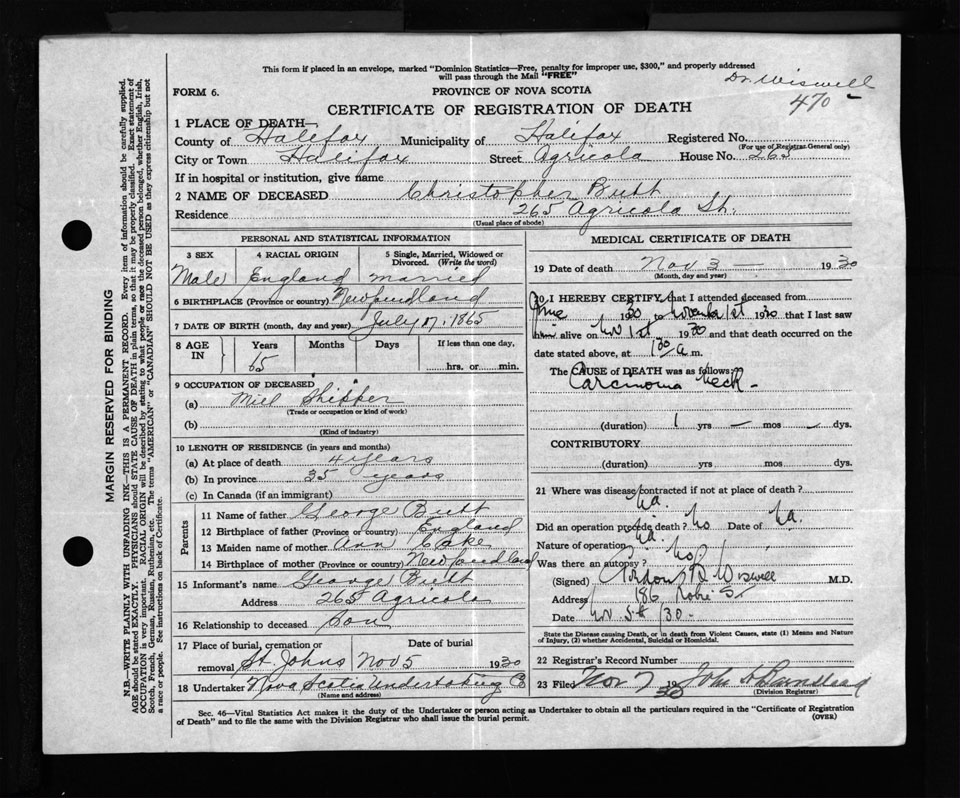 This form if placed in an envelope, marked "Dominion Statistics—Free, penalty for improper use, $300," and properly addressed
will pass through the Mail "FREE"
Dr. Wiswell
470
FORM 6.
PROVINCE OF NOVA SCOTIA
CERTIFICATE OF REGISTRATION OF DEATH
1 PLACE OF DEATH—
County of Halifax Municipality of Halifax Registered No.
(For use of Registrar General only)
City or Town Halifax Street Agricola House No. 265
If in hospital or institution, give name
2 NAME OF DECEASED Christopher Butt
Residence 265 Agricola St.
(Usual place of abode)
PERSONAL AND STATISTICAL INFORMATION
3 SEX 4 RACIAL ORIGIN 5 Single, Married, Widowed or Divorced. (Write the word)
Male England married
6 BIRTHPLACE (Province or country) Newfoundland
7 DATE OF BIRTH (month, day and year) July 17, 1865
8 AGE IN Years Months Days If less than one day,
65 hrs. or min.
9 OCCUPATION OF DECEASED
(a) Mill Shipper
(Trade or occupation or kind of work)
(b)
(Kind of industry)
10 LENGTH OF RESIDENCE (in years and months)
(a) At place of death 4 years
(b) In province 35 years
(c) In Canada (if an immigrant)
Parents
11 Name of father George Butt
12 Birthplace of father (Province or country) England
13 Maiden name of mother Ann
14 Birthplace of mother (Province or country) Newfoundland
15 Informant's name George Butt
Address 265 Agricola
16 Relationship to deceased Son
17 Place of burial, cremation or removal Date of burial
St. Johns Nov 5 1930
18 Undertaker Nova Scotia Undertaking Co
(Name and address)
MEDICAL CERTIFICATE OF DEATH
19 Date of death Nov 3 — 1930
(Month, day and year)
20 I HEREBY CERTIFY that I attended deceased from
June 1930 to November 1st 1930 that I last saw
him alive on Nov 1st 1930 and that death occurred on the
date stated above, at 1 30/ a m.
The CAUSE of DEATH was as follows:
Carcinoma Neck —
(duration) 1 yrs — mos — dys.
CONTRIBUTORY
(duration) yrs. mos. dys.
21 Where was disease contracted if not at place of death?
Did an operation precede death? No Date of
Nature of operation
Was there an autopsy? No
(Signed) Gordon B Wiswell M.D.
Address 186 Robie St
Date Nov 5th /30
State the Disease causing Death, or in death from Violent Causes, state (1) Means and Nature of Injury, (2) whether Accidental, Suicidal or Homicidal.
22 Registrar's Record Number
23 Filed Nov 7 1930 John
(Division Registrar)
Sec. 46—Vital Statistics Act makes it the duty of the Undertaker or person acting as Undertaker to obtain all the particulars required in the "Certificate of Registration
of Death" and to file the same with the Division Registrar who shall issue the burial permit.
(OVER)
MARGIN RESERVED FOR BINDING
N.B.—WRITE PLAINLY WITH UNFADING INK—THIS IS A PERMANENT RECORD. Every item of information should be carefully supplied.
AGE should be stated EXACTLY. PHYSICIANS should STATE CAUSE OF DEATH in plain terms, so that it may be properly classified. Exact statement of
OCCUPATION is very important. RACIAL ORIGIN will be described by stating to what people or race the deceased person belonged, whether English, Irish,
Scotch, French, German, Russian, Ruthenian, etc. The terms "AMERICAN" or "CANADIAN" SHOULD NOT BE USED as they express citizenship but not
a race or people. See instructions on back of Certificate.